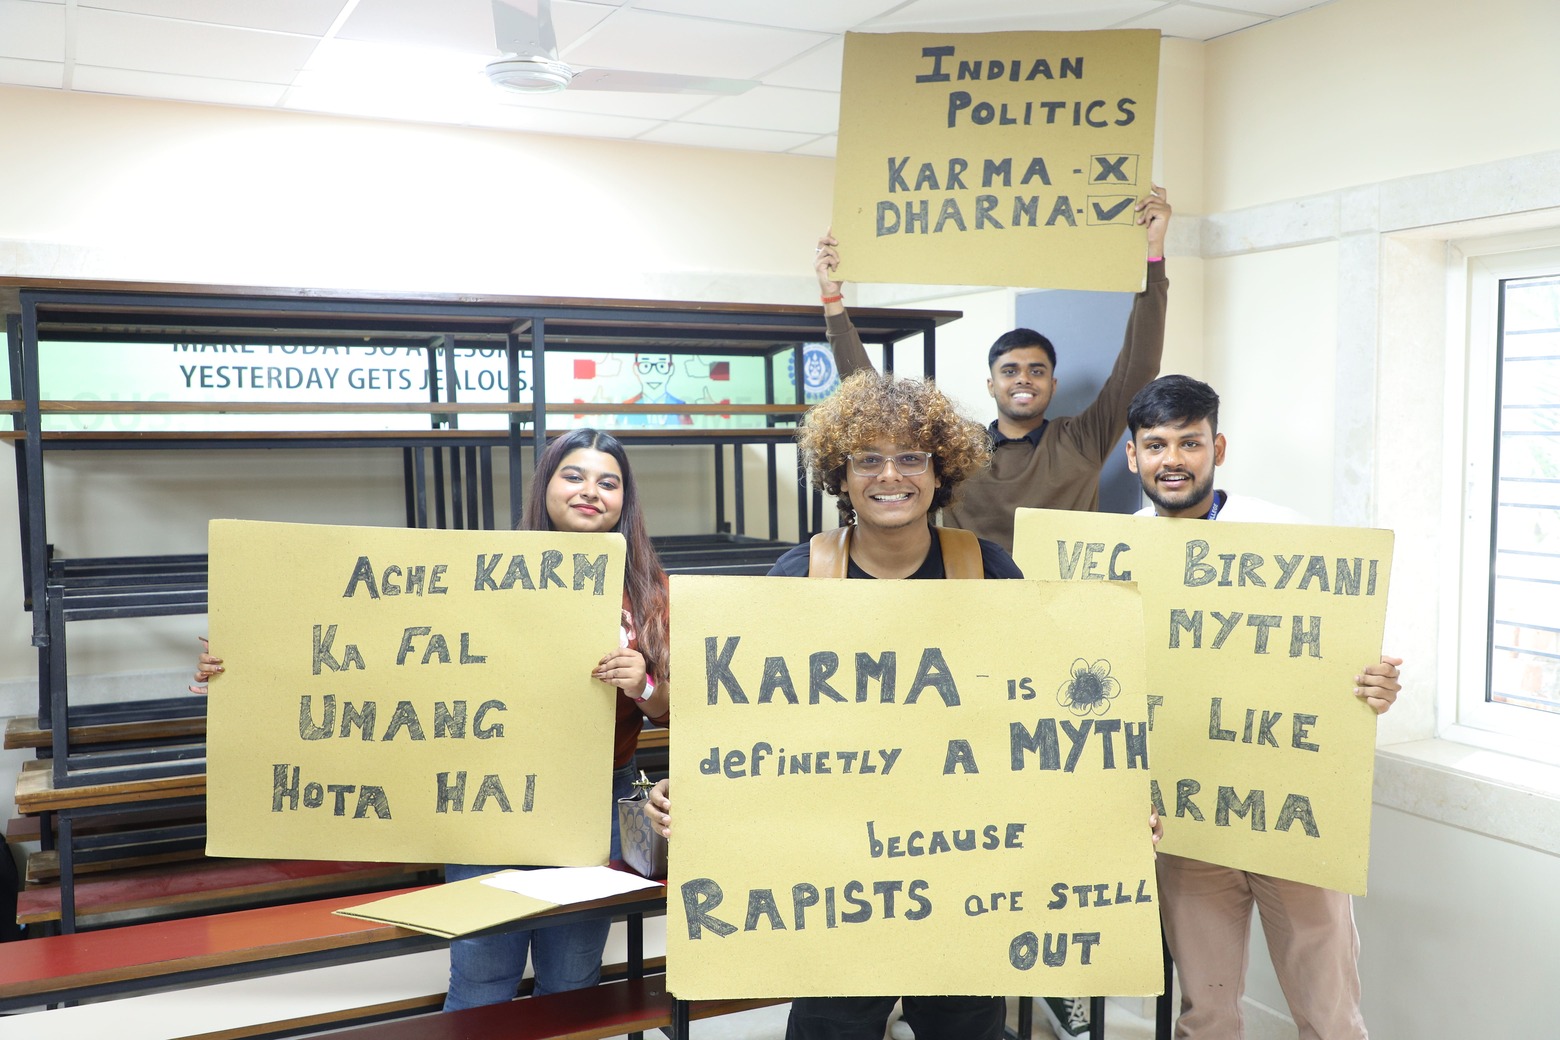 INDIAN
POLITICS
KARMA - X
DHARMA- ✓
YESTERDAY GETS JEALOUS.
ACHE KARM
KA FAL
UMANG
HOTA HAI
KARMA - IS
definETLY A MYTH
because
RAPISTS are STILL
OUT
VEG BIRYANI
MYTH
LIKE